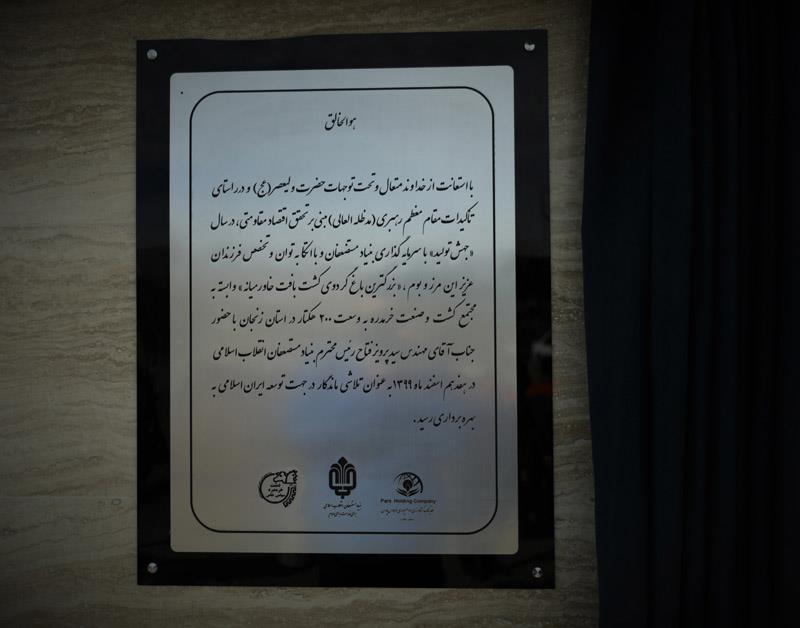 هوالخالق
با استعانت از خداوند متعال و تحت توجهات حضرت ولیعصر(عج) و در راستای
تاکیدات مقام معظم رهبری (مدظله العالی) مبنی بر تحقق اقتصاد مقاومتی، در سال
«جهش تولید» با سرمایه گذاری بنیاد مستضعفان و با اتکا به توان و تخصص فرزندان
عزیز این مرز و بوم ، «بزرگترین باغ گردوی کشت بافت خاورمیانه» وابسته به
مجتمع کشت و صنعت خرمدره به وسعت ۲۰۰ هکتار در استان زنجان با حضور
جناب آقای مهندس سید پرویز فتاح رئیس محترم بنیاد مستضعفان انقلاب اسلامی
در هفدهم اسفند ماه ۱۳۹۹ به عنوان تلاشی ماندگار در جهت توسعه ایران اسلامی به
بهره برداری رسید.
Pars Holding Company
بنیاد مستضعفان انقلاب اسلامی